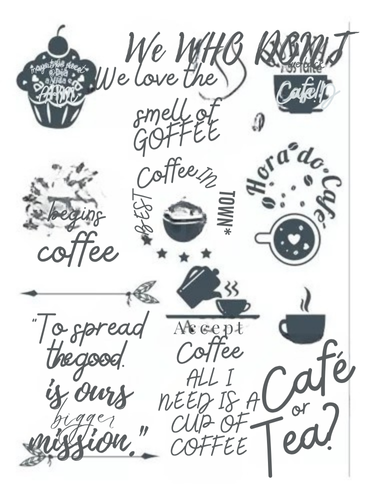 We WHO
We love the
smell of
GOFFEE
Café!!
Coffee IN
BEST
TOWN*
Hora do Café
begins
coffee
"To spread
the good.
is ours
bigger
mission."
Accept
Coffee
ALL I
NEED IS A
CUP OF
COFFEE
Café
or
Tea?